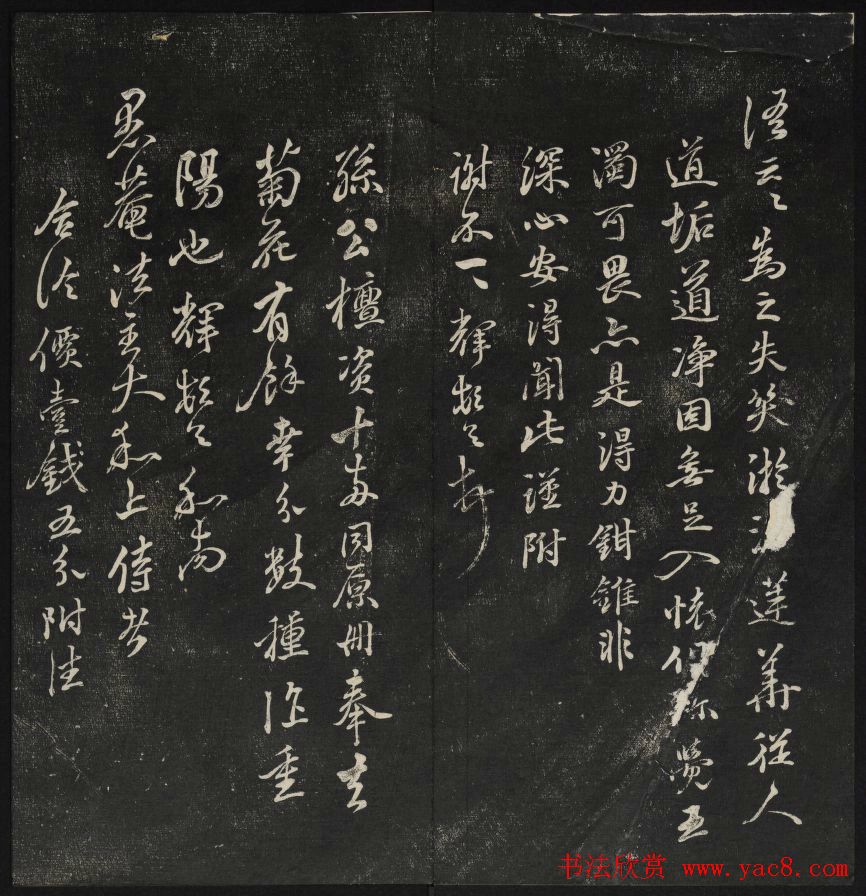 語云云為之失笑淤泥蓮華從人
道垢道净因無足入懷但弥覺五
濁可畏亦是得力鉗錐非
深心安得聞此謹附
謝不一一輝頓首
孫公檀资十兩同原冊奉去
菊花有餘幸分數種作重
陽也輝頓首和南
愚菴法主大和上侍者
價壹錢五分附往
书法欣赏 www.yac8.com